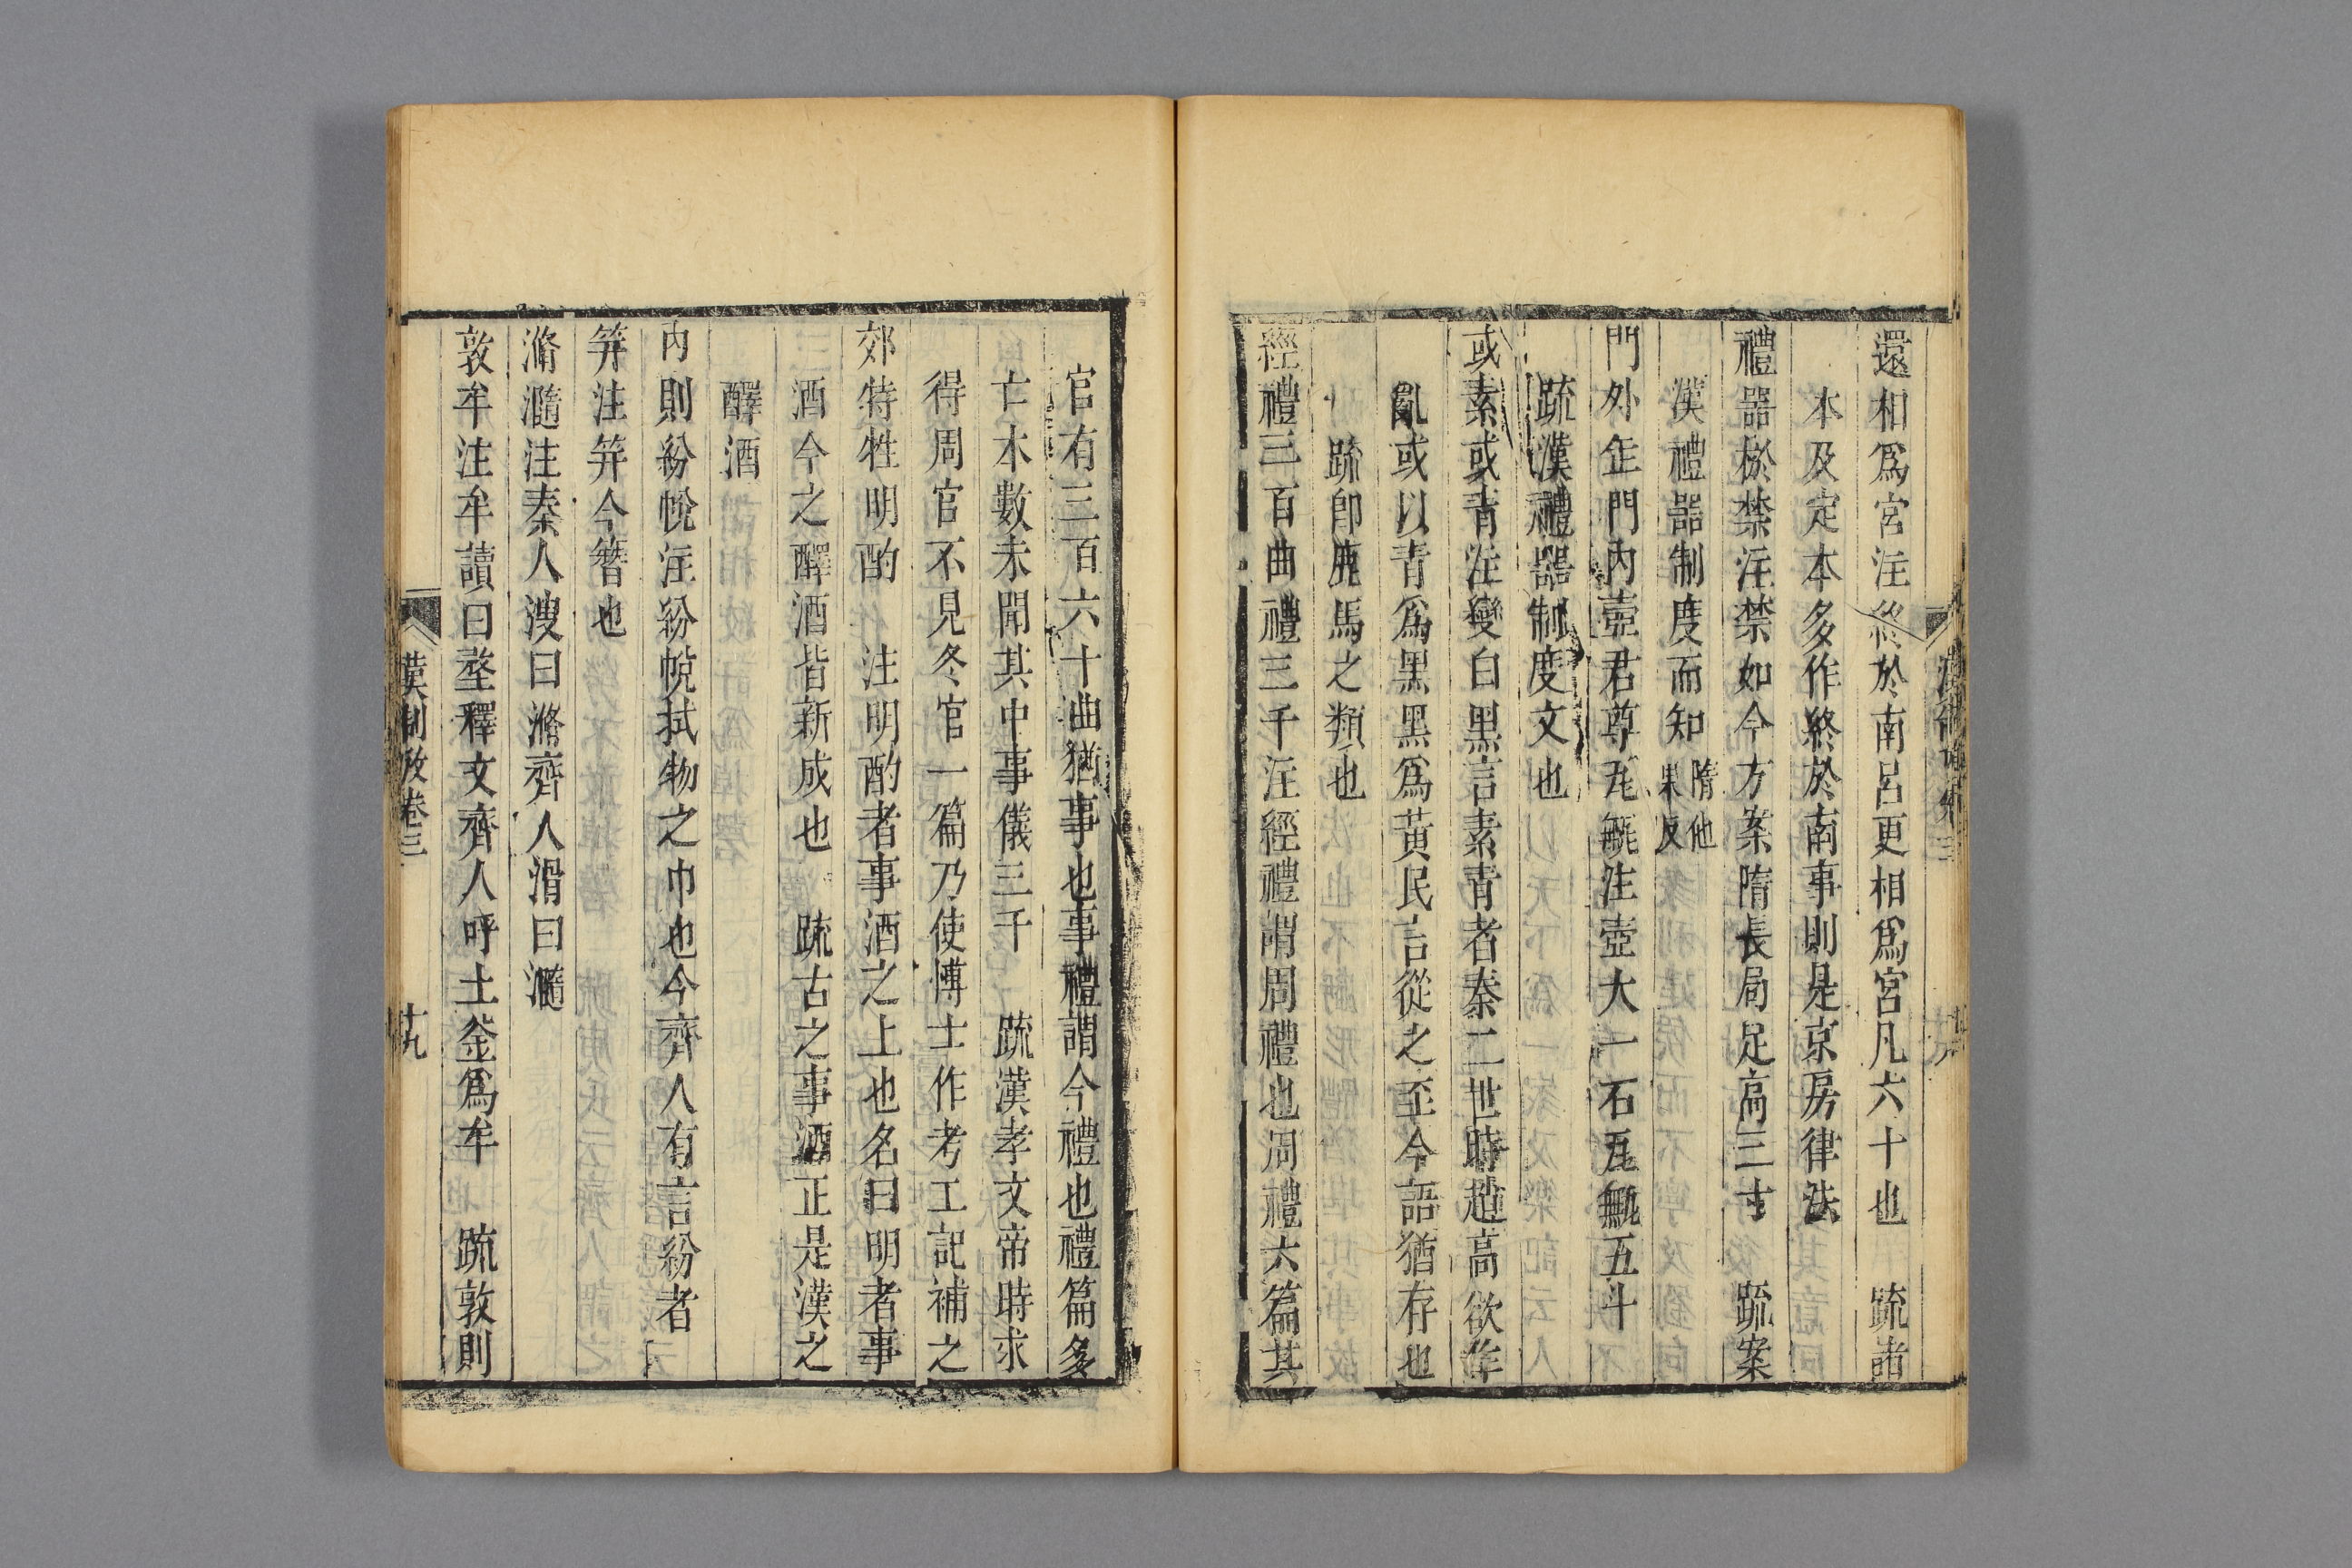 還相爲宮注終於南呂更相爲宮凡六十也　疏諸
本及定本多作終於南事則是京房律法
禮器棜禁注禁如今方案隋長局足高三寸　疏案
漢禮器制度而知隋他果反
門外缶門內壺君尊瓦甒注壺大一石瓦甒五斗
疏漢禮器制度文也
或素或青注變白黑言素青者秦二世時趙高欲作
亂或以青爲黑黑爲黃民言從之至今語猶存也
疏卽鹿馬之類也
經禮三百曲禮三千注經禮謂周禮也周禮六篇其
官有三百六十曲猶事也事禮謂今禮也禮篇多
亡本數未聞其中事儀三千　疏漢孝文帝時求
得周官不見冬官一篇乃使博士作考工記補之
郊特牲明酌　注明酌者事酒之上也名曰明者事
酒今之醳酒皆新成也　疏古之事酒正是漢之
醳酒
內則紛帨注紛帨拭物之巾也今齊人有言紛者
笄注笄今簪也
滫瀡注秦人溲曰滫齊人滑曰瀡
敦牟注牟讀曰堥釋文齊人呼土釜爲牟　疏敦則
漢制攷卷三　十九